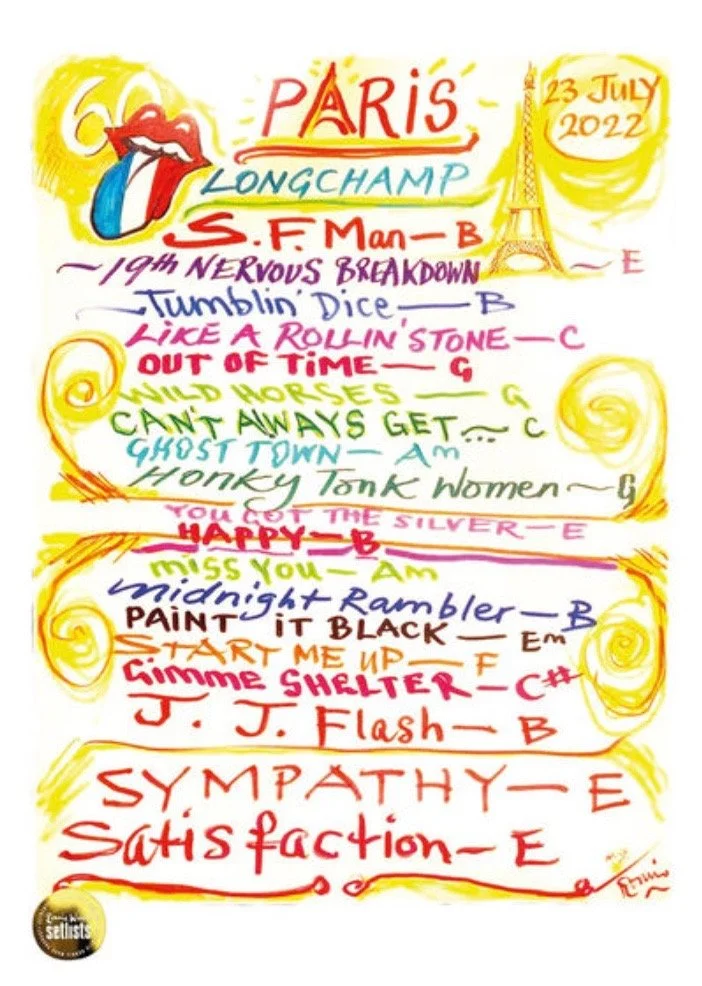 60
PARiS
23 JULY
2022
LONGCHAMP
S.F. Man — B
~ 19th NERVOUS BREAKDOWN ~ E
Tumblin' Dice — B
LiKE A ROLLIN' STONE — C
OUT OF TiME — G
WILD HORSES — G
CAN'T ALWAYS GET... ~ C
GHOST TOWN — Am
Honky Tonk Women ~ G
YOU GOT THE SILVER — E
HAPPY — B
miSS YOU — Am
midnight Rambler — B
PAiNT iT BLACK — Em
START ME UP — F
Gimme SHELTER — C#
J. J. Flash — B
SYMPATHY — E
Satisfaction — E
Ronnie Wood
setlists